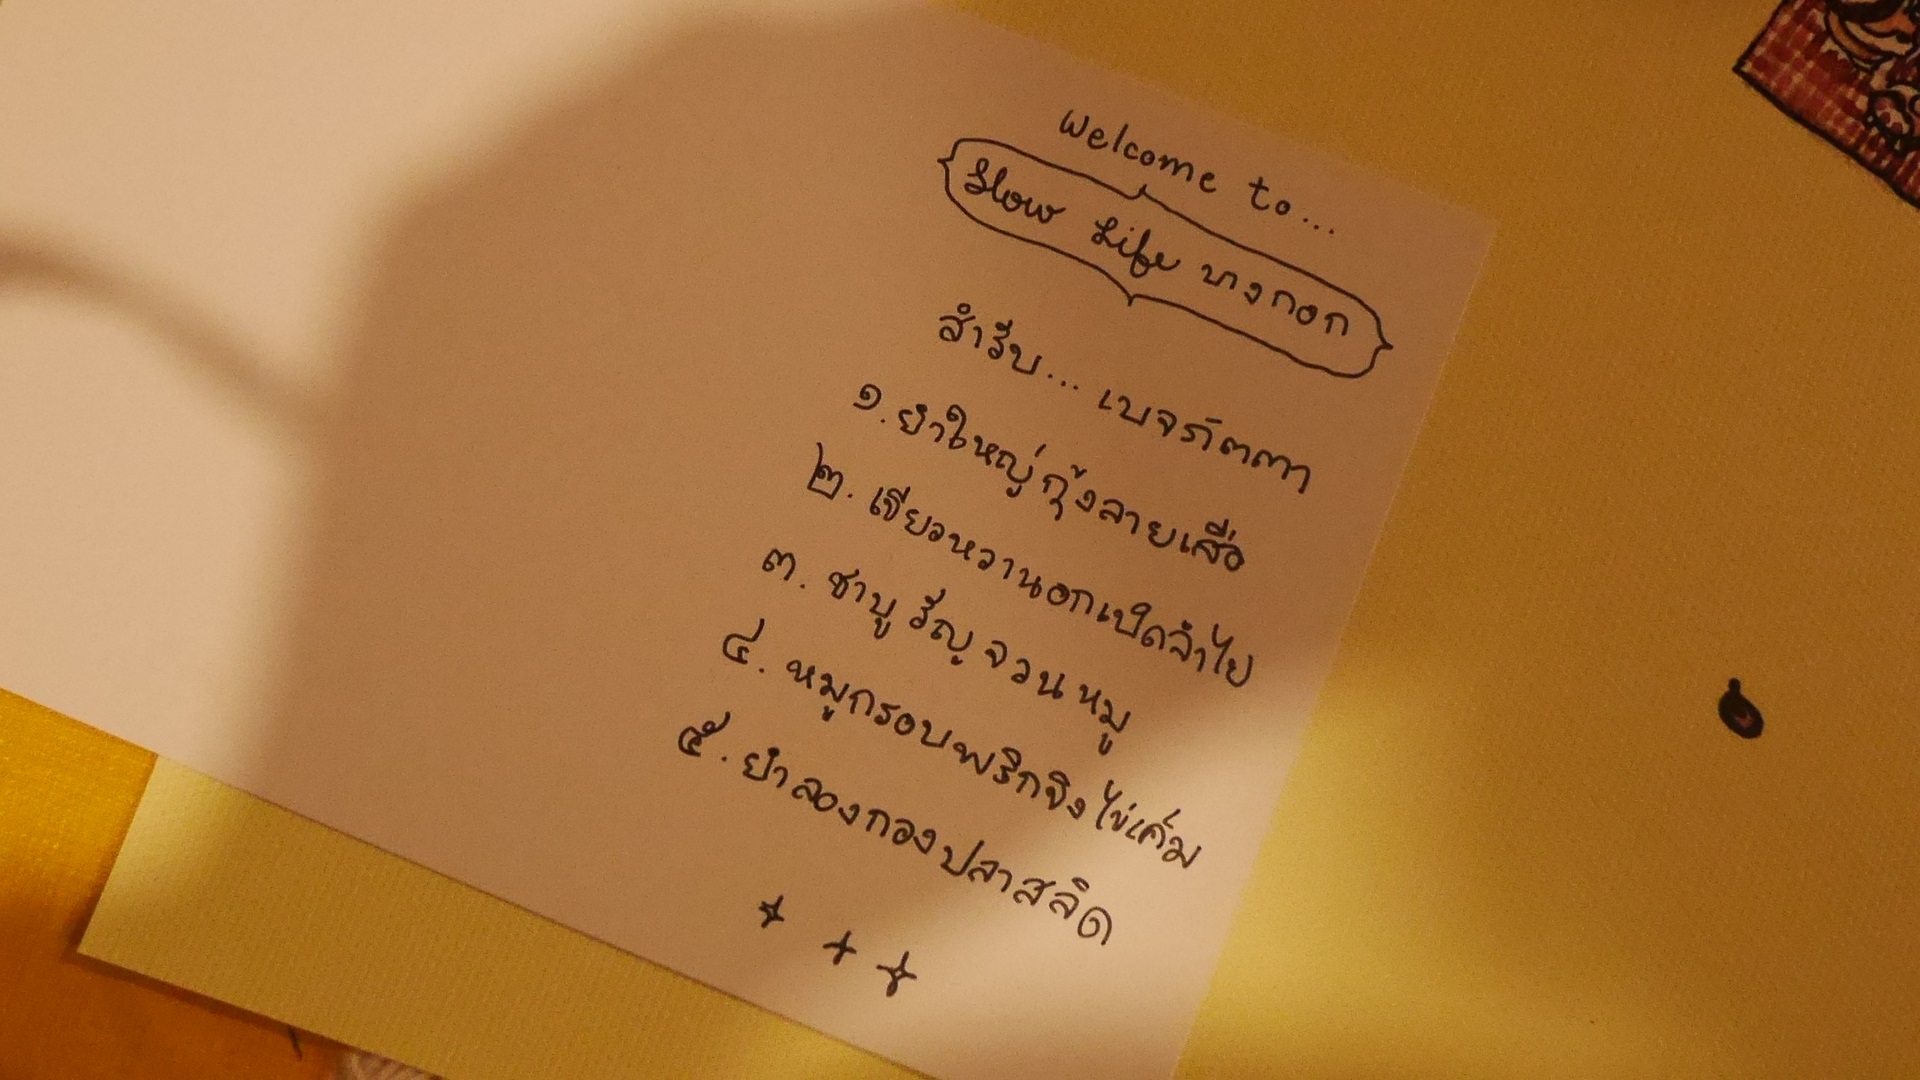 Welcome to...
Slow Life บางกอก
สำรับ... เบจรัตตา
๑. ยำใหญ่กุ้งลายเสือ
๒. เขียวหวานอกเป็ดลำไย
๓. ชาบู รัญจวน หมู
๔. หมูกรอบพริกขิง ไข่เค็ม
๕. ยำลองกองปลาสลิด